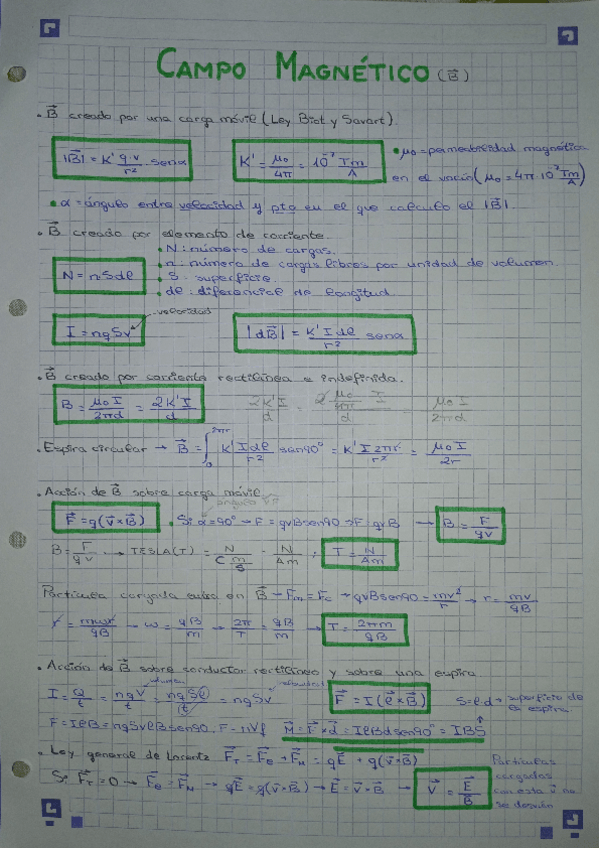 CAMPO MAGNÉTICO (B⃗)
• B⃗ creado por una carga móvil (Ley Biot y Savart).
|B⃗| = K' q·v / r² · senα   K' = μ₀/4π = 10⁻⁷ Tm/A   • μ₀ = permeabilidad magnética
en el vacío (μ₀ = 4π·10⁻⁷ Tm/A)
• α = ángulo entre velocidad y pto en el que calculo el |B⃗|.
• B⃗ creado por elemento de corriente.
• N: número de cargas.
N = nSdl   • n: número de cargas libres por unidad de volumen.
• S: superficie.
• dl: diferencial de longitud.
velocidad
I = nqSv   |dB⃗| = K'Idl / r² senα
• B⃗ creado por corriente rectilínea e indefinida.
B = μ₀I/2πd = 2K'I/d   2K'I/d = 2 μ₀/4π I / d = μ₀I/2πd
• Espira circular → B⃗ = ∫₀^2πr K'Idl/r² sen90° = K'I2πr/r² = μ₀I/2r
• Acción de B⃗ sobre carga móvil.
F⃗ = q(v⃗×B⃗)   • Si α=90° → F = qvBsen90 → F = qvB → B = F/qv
B = F/qv → TESLA(T) = N/(C m/s) = N/Am   T = N/Am
Partícula cargada entra en B⃗ → Fm = Fc → qvBsen90 = mv²/r → r = mv/qB
r = mwr/qB → w = qB/m → 2π/T = qB/m → T = 2πm/qB
• Acción de B⃗ sobre conductor rectilíneo y sobre una espira.
I = Q/t = nqV/t = nqSl/t = nqSv   F⃗ = I(l⃗×B⃗)   S = l·d → superficie de
la espira.
F = IlB = nqSvlBsen90.   M⃗ = F⃗×d⃗ = IlBdsen90° = IBS
• Ley general de Lorentz F⃗T = F⃗e + F⃗M = qE⃗ + q(v⃗×B⃗)
Partículas
Si F⃗T = 0 → F⃗e = F⃗M → qE⃗ = q(v⃗×B⃗) → E⃗ = v⃗×B⃗ → V⃗ = E⃗/B⃗   cargadas
con esta v⃗ no
se desvían